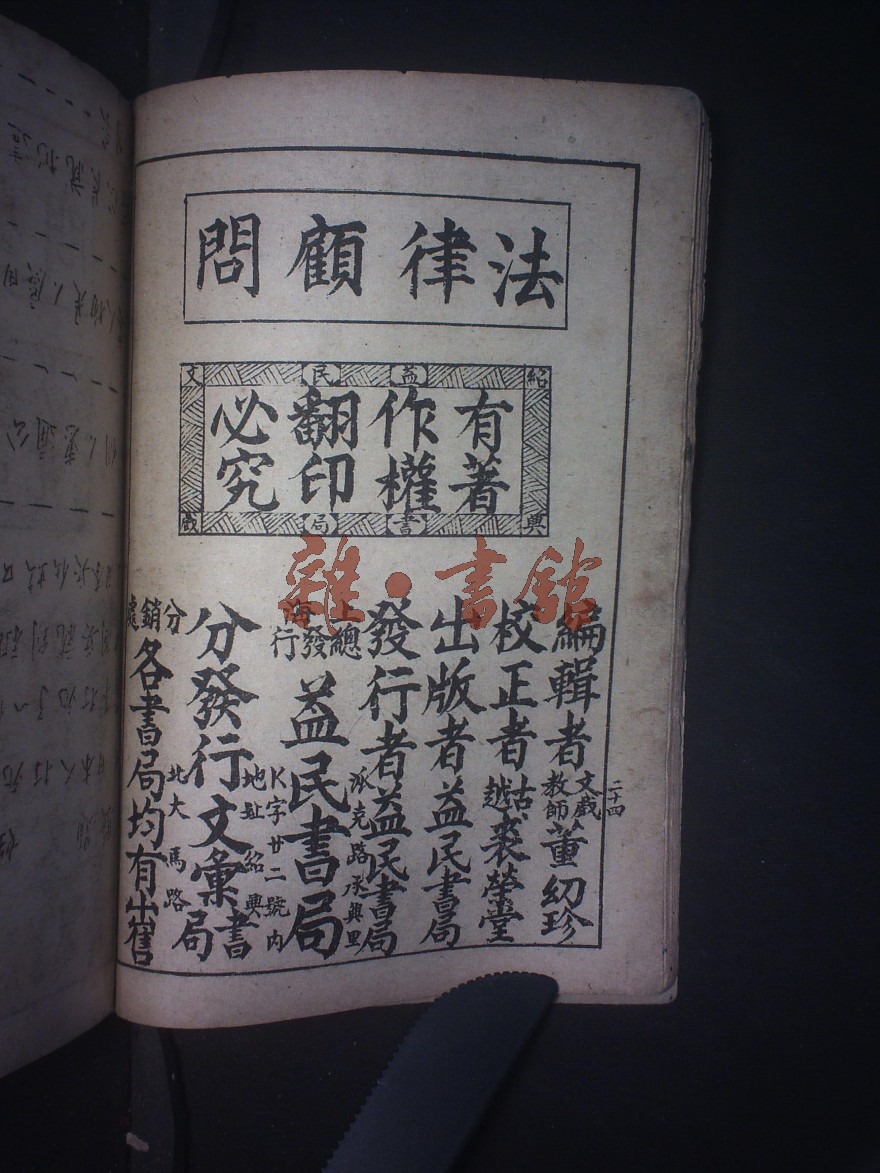 法律顧問
紹興
益書
民局
文戲
有著
作權
翻印
必究
二十四
編輯者文戲教師董紉珍
校正者古越裘榮堂
出版者益民書局
發行者益民書局
上海總發行益民書局
派克路承興里
K字廿二號內
分發行文彙書局
地址紹興
北大馬路
分銷處各書局均有出售
雜·書館